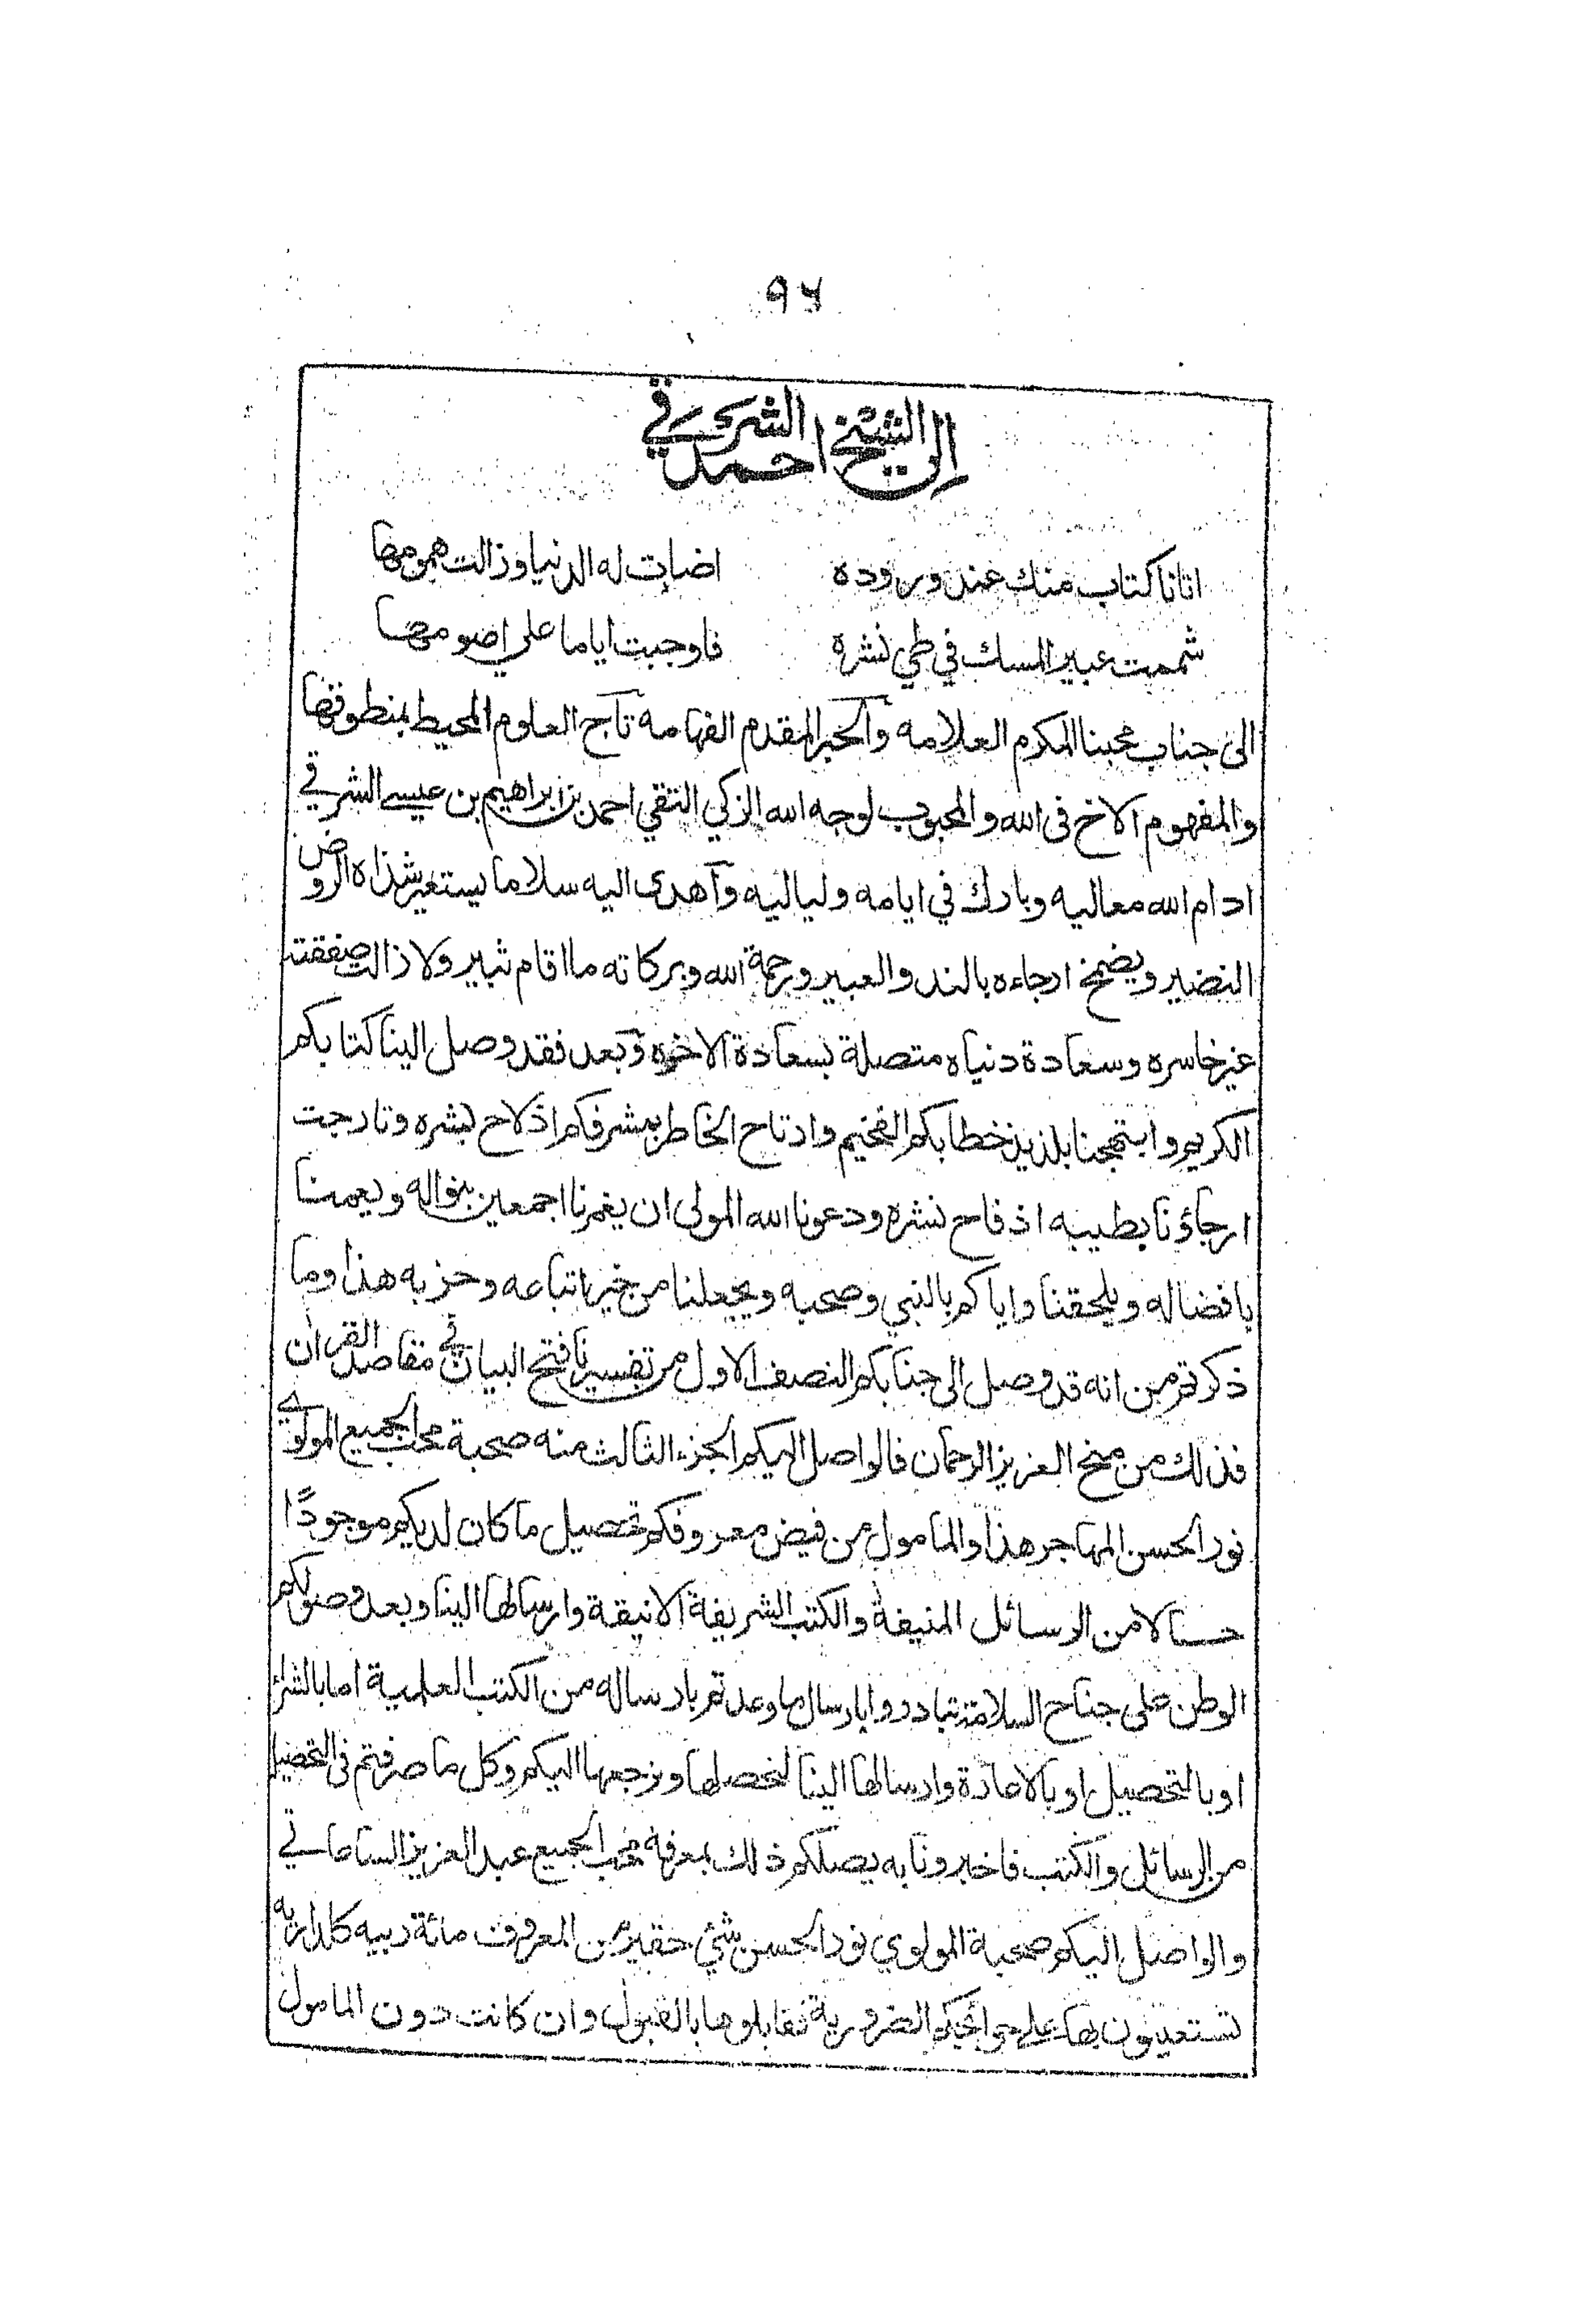 ٩٦
الى الشيخ احمد الشرقي
اتانا كتاب منك عند وروده اضات له الدنيا وزالت همومها
شممت عبير المسك في طي نشره فاوجبت اياما علي اصومها
الى جناب محبنا المكرم العلامه والحبر المقدم الفهامه تاج العلوم المحيط بمنطوقها
والمفهوم الاخ فى الله والمحبوب لوجه الله الزكي التقي احمد بن ابراهيم بن عيسى الشرقي
ادام الله معاليه وبارك في ايامه ولياليه واهدى اليه سلاما يستعير شذاه الروض
النضير ويضمخ ارجاءه بالند والعبير ورحمة الله وبركاته ما اقام ثبير ولا زالت صفقته
غير خاسره وسعادة دنياه متصلة بسعادة الاخره وبعد فقد وصل الينا كتابكم
الكريم وابتهجنا بلذيذ خطابكم الفخيم وارتاح الخاطر بمشرفكم اذ لاح بشره وتارجت
ارجاؤنا بطيبه اذ فاح نشره ودعونا الله المولى ان يغمرنا اجمعين بنواله ويعمنا
بافضاله ويلحقنا واياكم بالنبي وصحبه ويجعلنا من خير اتباعه وحزبه هذا وما
ذكرتم من انه قد وصل الى جنابكم النصف الاول من تفسيرنا فتح البيان في مقاصد القران
فذلك من منح العزيز الرحمان فالواصل اليكم الجزء الثالث منه صحبة محب الجميع المولوي
نور الحسن المهاجر هذا والمامول من فيض معروفكم تحصيل ما كان لديكم موجودًا
حسالا من الرسائل المنيفة والكتب الشريفة الانيقة وارسالها الينا وبعد وصولكم
الوطن على جناح السلامة تبادروا بارسال ما وعدتم بارساله من الكتب العلمية اما بالشرا
او بالتحصيل او بالاعادة وارسالها الينا لنحصلها ونرجعها اليكم وكل ما صرفتم فى التحصيل
من الرسائل والكتب فاخبرونا به يصلكم ذلك بمعرفة محب الجميع عبد العزيز
والواصل اليكم صحبة المولوي نور الحسن شئ حقير من المعروف مائة ربيه كلداريه
تستعينون بها على حوائجكم الضرورية فقابلوها بالقبول وان كانت دون المامول